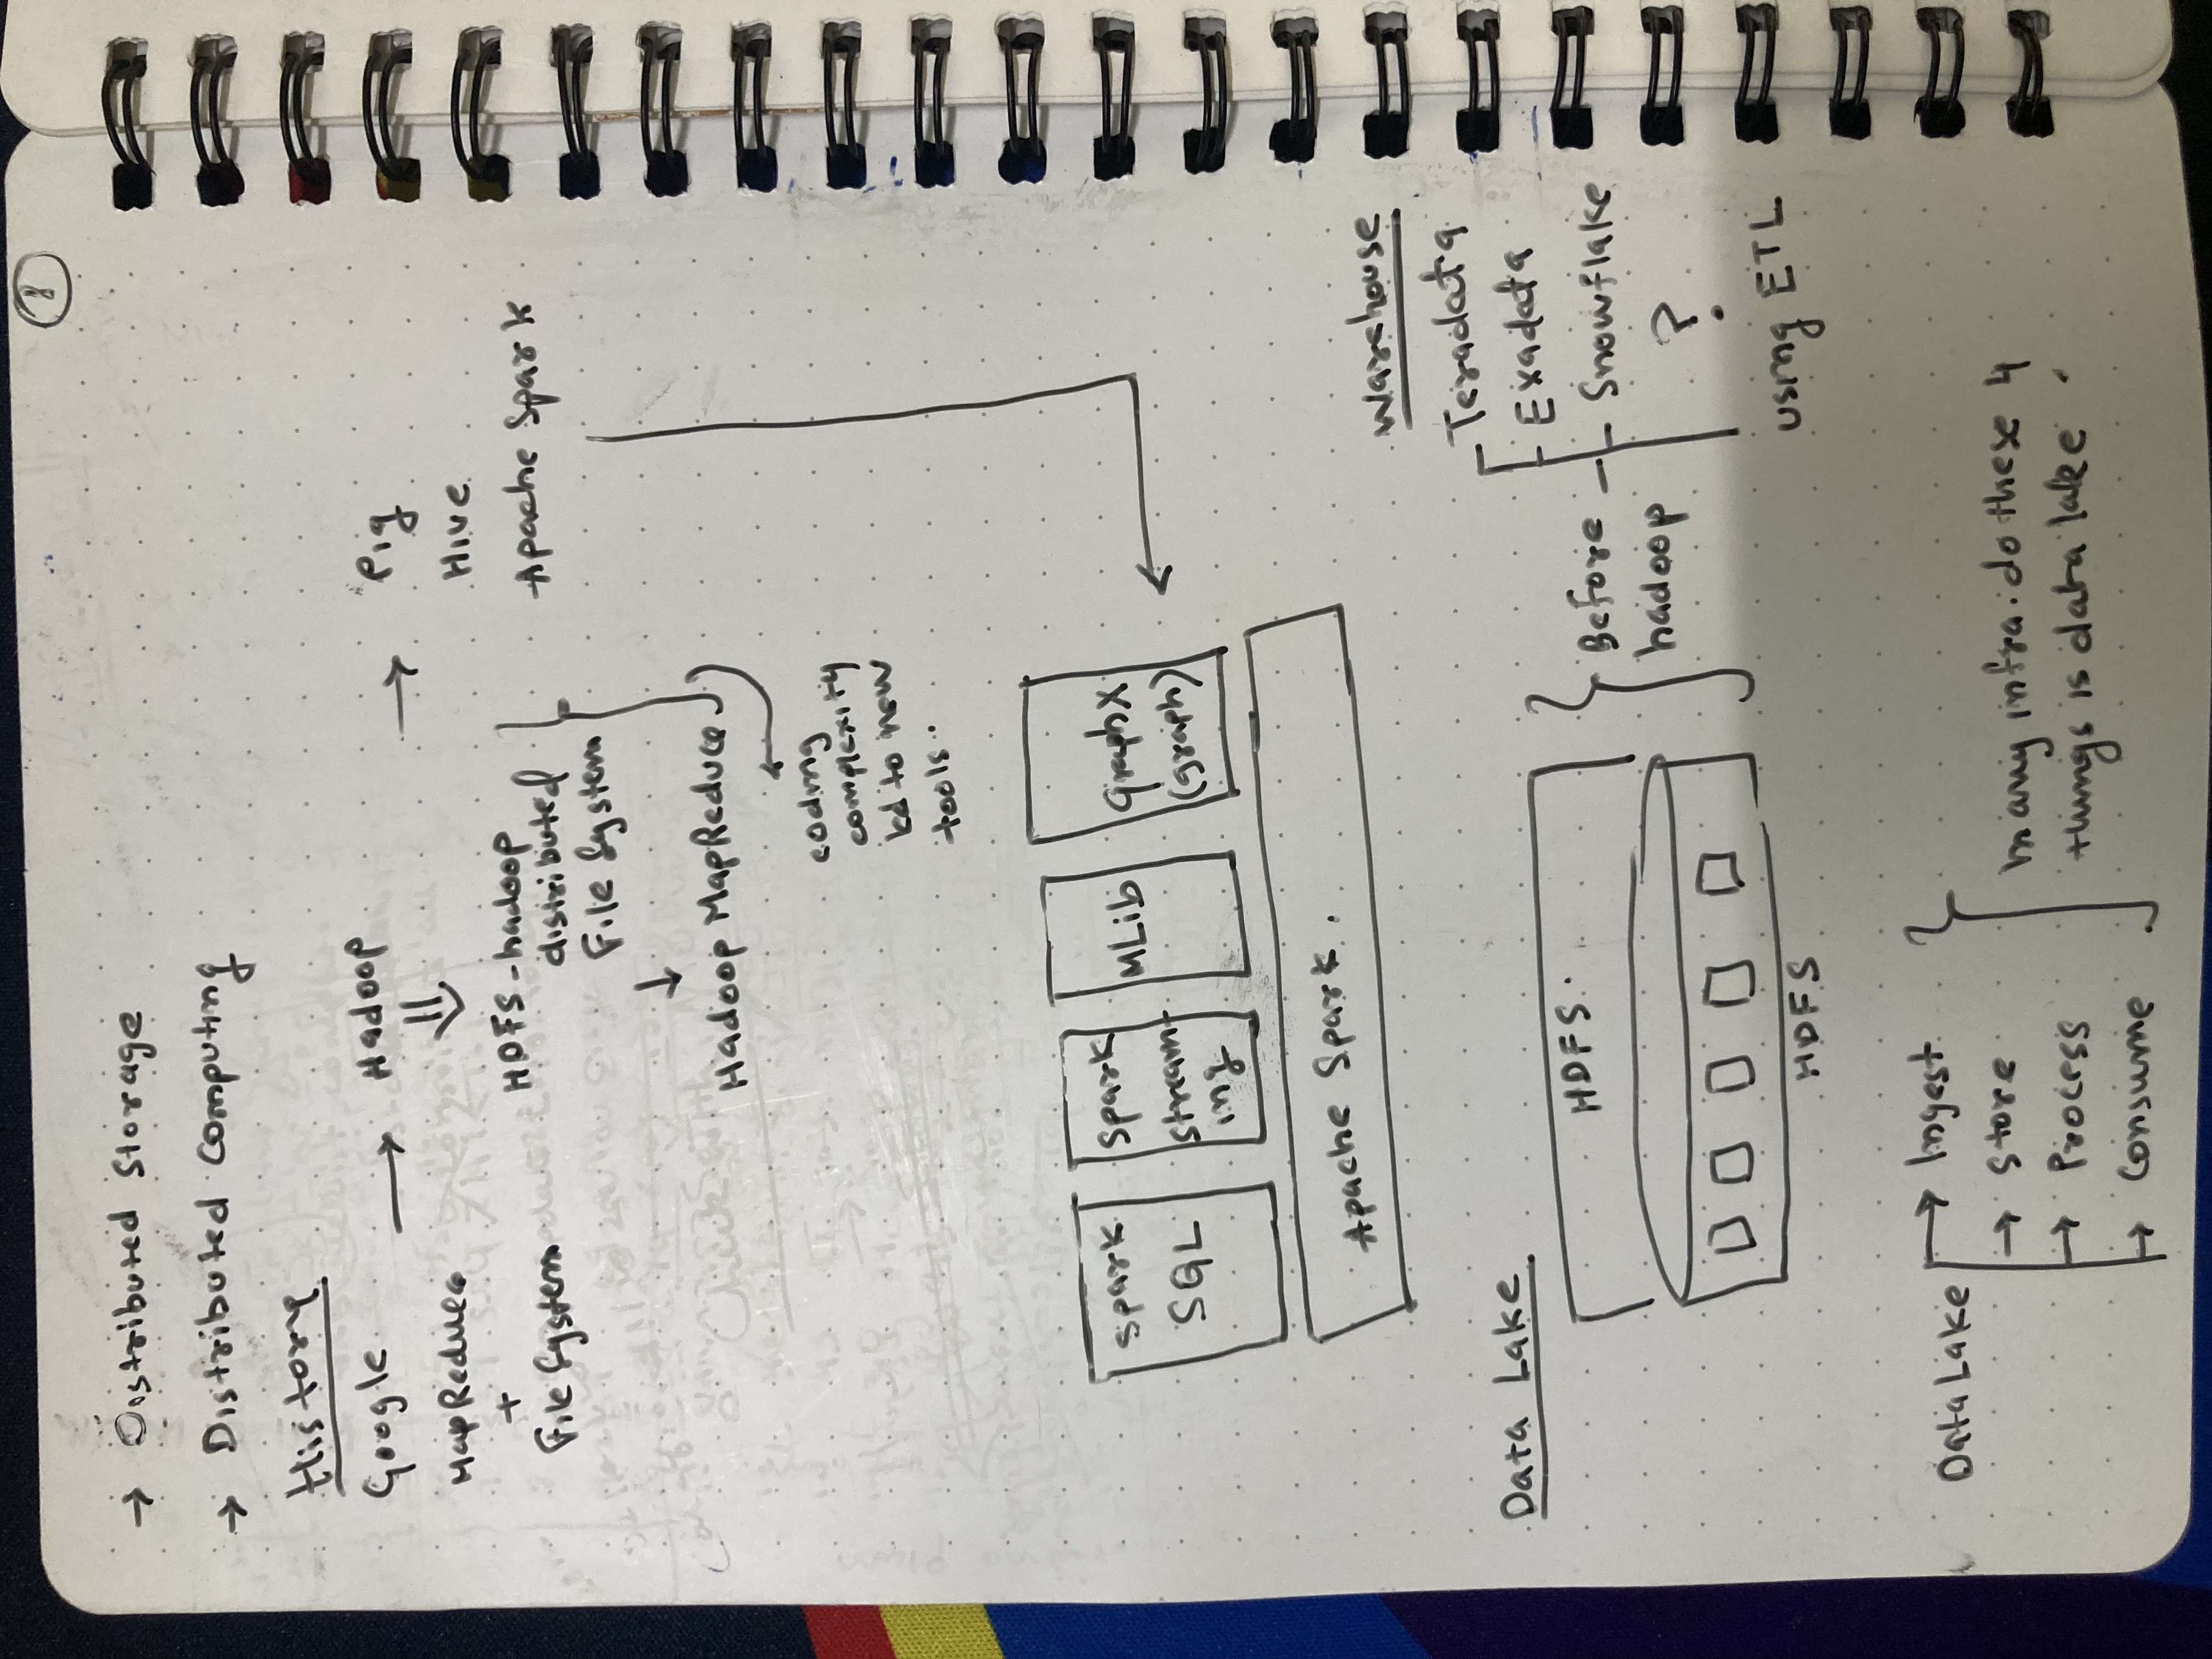 1
→ Distributed Storage
→ Distributed Computing
History
Google → Hadoop → Pig
MapReduce
+
File System
HDFS - hadoop
distributed
File System
↓
Hadoop MapReduce
coding
complexity
led to new
tools.
Hive
Apache Spark
Spark
SQL
Spark
stream-
ing
MLib
GraphX
(graph)
Apache Spark.
Data Lake
HDFS.
HDFS
Before
hadoop
Warehouse
Teradata
Exadata
Snowflake
?
using ETL
Data Lake → Ingest
→ Store
→ Process
→ Consume
many infra. do these 4
things is data lake